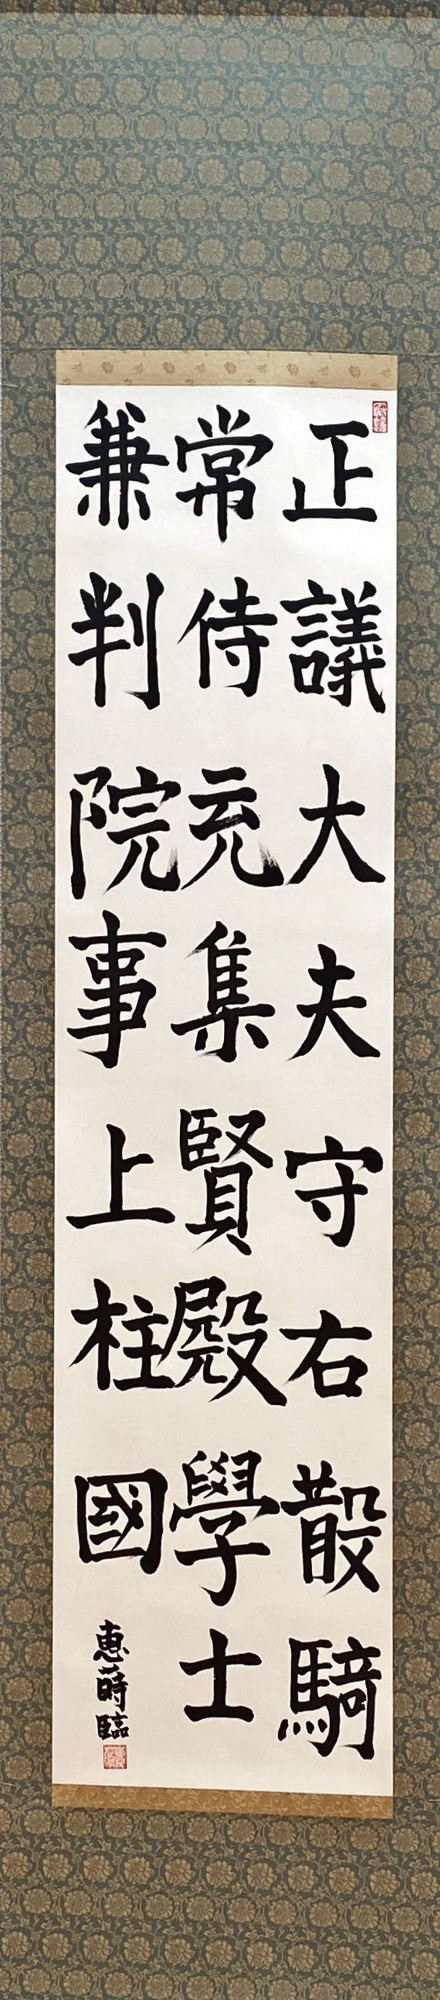 正議大夫守右散騎
常侍充集賢殿學士
兼判院事上柱國
恵蒔臨